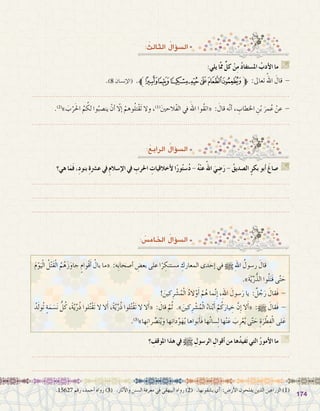 السؤال الثالث:
ما الأدبُ المستفادُ مِنْ كلٍّ ممّا يلي:
- قال اللهُ تعالى: ﴿ وَيُطْعِمُونَ ٱلطَّعَامَ عَلَىٰ حُبِّهِۦ مِسْكِينًا وَيَتِيمًا وَأَسِيرًا ﴾. (الإنسان 8).
- عَنْ عُمَرَ بْنِ الخطّابِ، أنَّه قالَ: «اتّقوا اللهَ في الفلّاحينَ(1)، ولا تَقْتُلوهُمْ إلّا أَنْ يَنصِبوا لكُمُ الحَرْبَ»(2).
السؤال الرابـع:
صاغَ أبو بكرٍ الصديقُ – رَضِيَ اللهُ عَنْهُ – دُستورًا لأخلاقياتِ الحربِ في الإسلام في عشرة بنود، فَمَا هي؟
السؤال الخامس:
قال رسولُ اللهِ ﷺ في إحْدى المعارك مستنكرًا على بعض أصحابه: «ما بالُ أقوامٍ جاوَزَهُمُ القَتْلُ اليَوْمَ
حَتّى قَتَلُوا الذُّرِّيَّةَ».
- فقالَ رَجُلٌ: يا رسولَ اللهِ، إنَّما هُمْ أَوْلادُ المُشْرِكينَ!
- فقالَ ﷺ: «أَلا إنَّ خِيارَكُمْ أَبْنَاءُ المُشْرِكِينَ». ثُمَّ قالَ: «أَلا لا تَقْتُلوا ذُرِّيَّةً، أَلا لا تَقْتُلوا ذُرِّيَّةً، كُلُّ نَسَمَةٍ تُولَدُ
عَلَى الفِطْرَةِ حَتّى يُعْرِبَ عَنْها لِسانُها فَأَبَواها يُهَوِّدانِها ويُنَصِّرانِها»(3).
ما الأمورُ التي تفيدُها مِنْ أقوالِ الرسولِ ﷺ في هذا الموقفِ؟
(1) الزراعين الذين يفلحون الأرض؛ أي يشقونها. (2) رواه البيهقي في معرفة السنن والآثار. (3) رواه أحمد، رقم 15627.
174